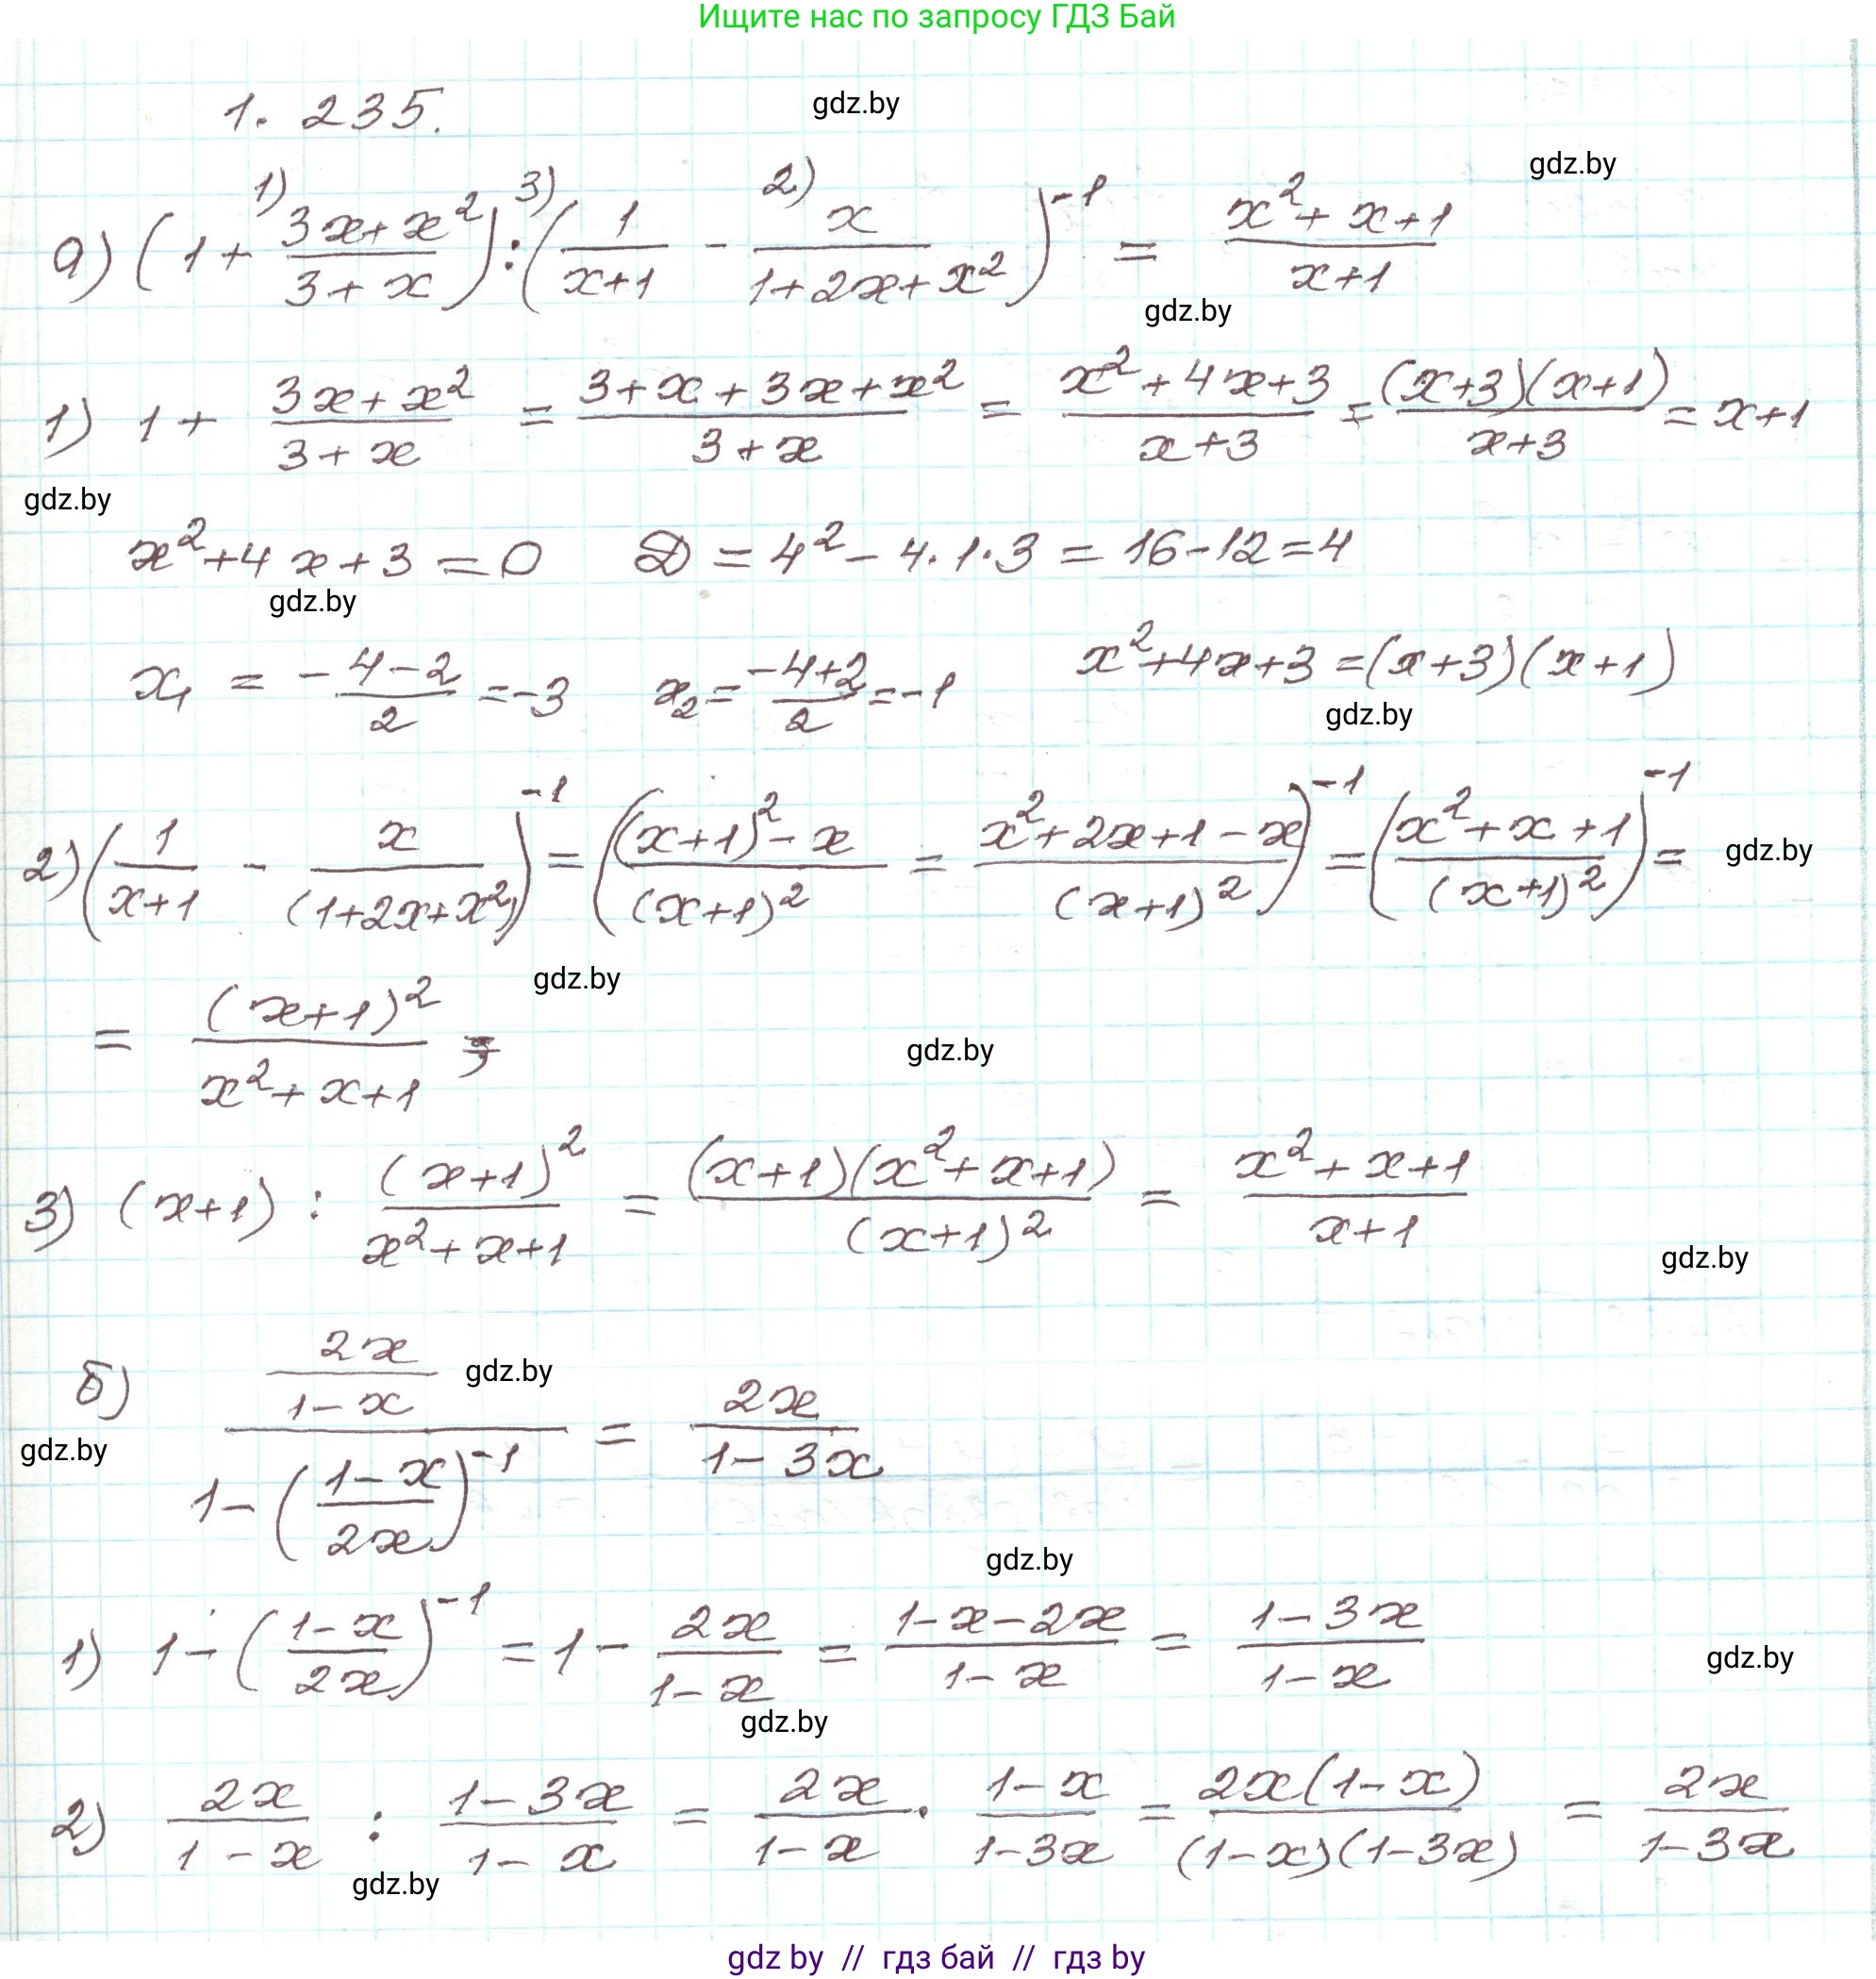 Ищите нас по запросу ГДЗ Бай
1. 235.
gdz.by
gdz.by
а) (1 + (3x+x²)/(3+x)) : (1/(x+1) - x/(1+2x+x²))⁻¹ = (x²+x+1)/(x+1)
1) 3) 2)
gdz.by
1) 1 + (3x+x²)/(3+x) = (3+x+3x+x²)/(3+x) = (x²+4x+3)/(x+3) = ((x+3)(x+1))/(x+3) = x+1
gdz.by
x²+4x+3=0 D = 4² - 4·1·3 = 16-12=4
gdz.by
x₁ = (-4-2)/2 = -3 x₂ = (-4+2)/2 = -1 x²+4x+3=(x+3)(x+1)
gdz.by
2) (1/(x+1) - x/(1+2x+x²))⁻¹ = (((x+1)²-x)/(x+1)² = (x²+2x+1-x)/(x+1)²)⁻¹ = ((x²+x+1)/(x+1)²)⁻¹ =
gdz.by
gdz.by
= (x+1)²/(x²+x+1) ;
gdz.by
3) (x+1) : (x+1)²/(x²+x+1) = ((x+1)(x²+x+1))/(x+1)² = (x²+x+1)/(x+1)
gdz.by
б) (2x/(1-x))/(1-((1-x)/2x)⁻¹) = 2x/(1-3x)
gdz.by
gdz.by
gdz.by
1) 1-((1-x)/2x)⁻¹ = 1 - 2x/(1-x) = (1-x-2x)/(1-x) = (1-3x)/(1-x)
gdz.by
gdz.by
2) 2x/(1-x) : (1-3x)/(1-x) = 2x/(1-x) · (1-x)/(1-3x) = (2x(1-x))/((1-x)(1-3x)) = 2x/(1-3x)
gdz.by
gdz by // гдз бай // гдз by